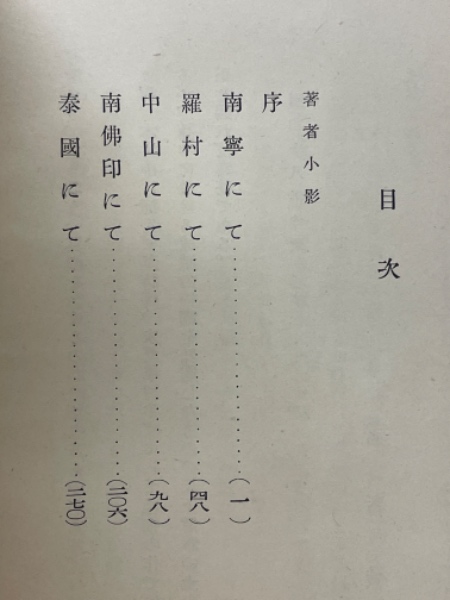 目次
著者小影
序
南寧にて……………………(一)
羅村にて……………………(四八)
中山にて……………………(九八)
南佛印にて……………………(二〇六)
泰國にて……………………(二七〇)